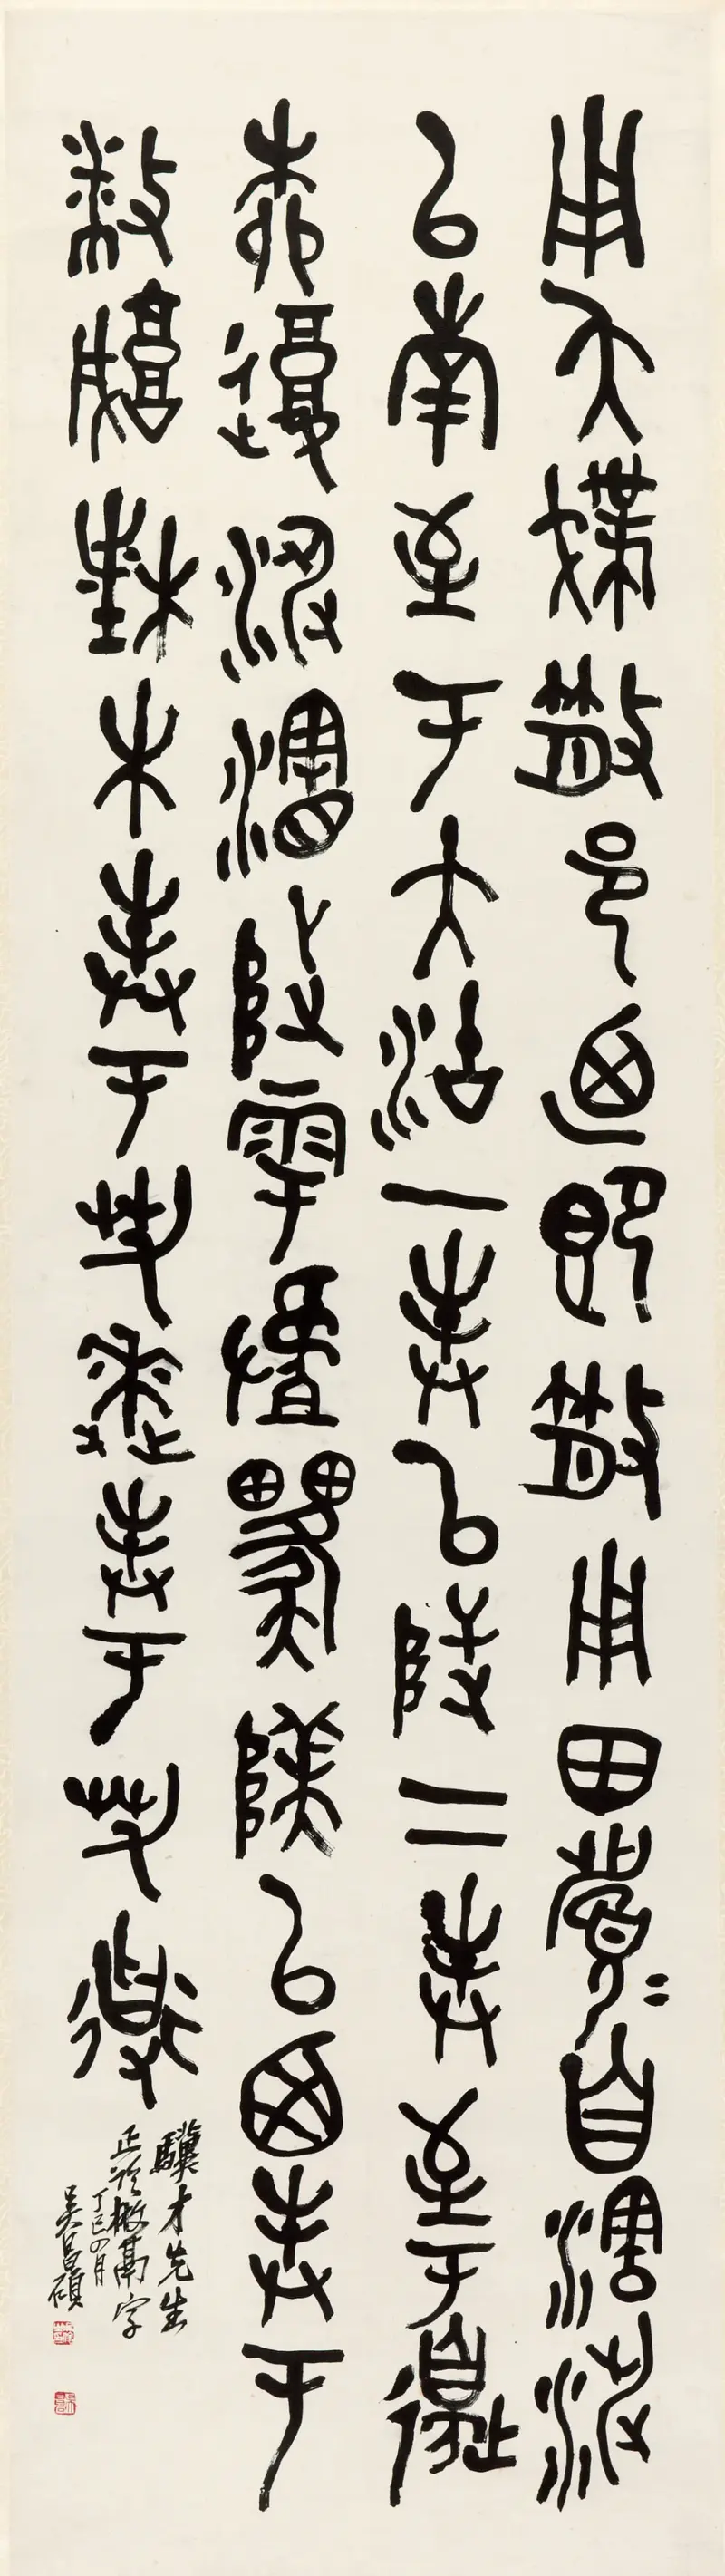 用夨散邑迺即散用田眉=自瀗涉
以南至于大沽一封以陟二封至于邊
柳復涉瀗陟雩陕以西封于
城木封于芻逨封于芻道
驥才先生
正臨散鬲字
丁巳四月
吳昌碩